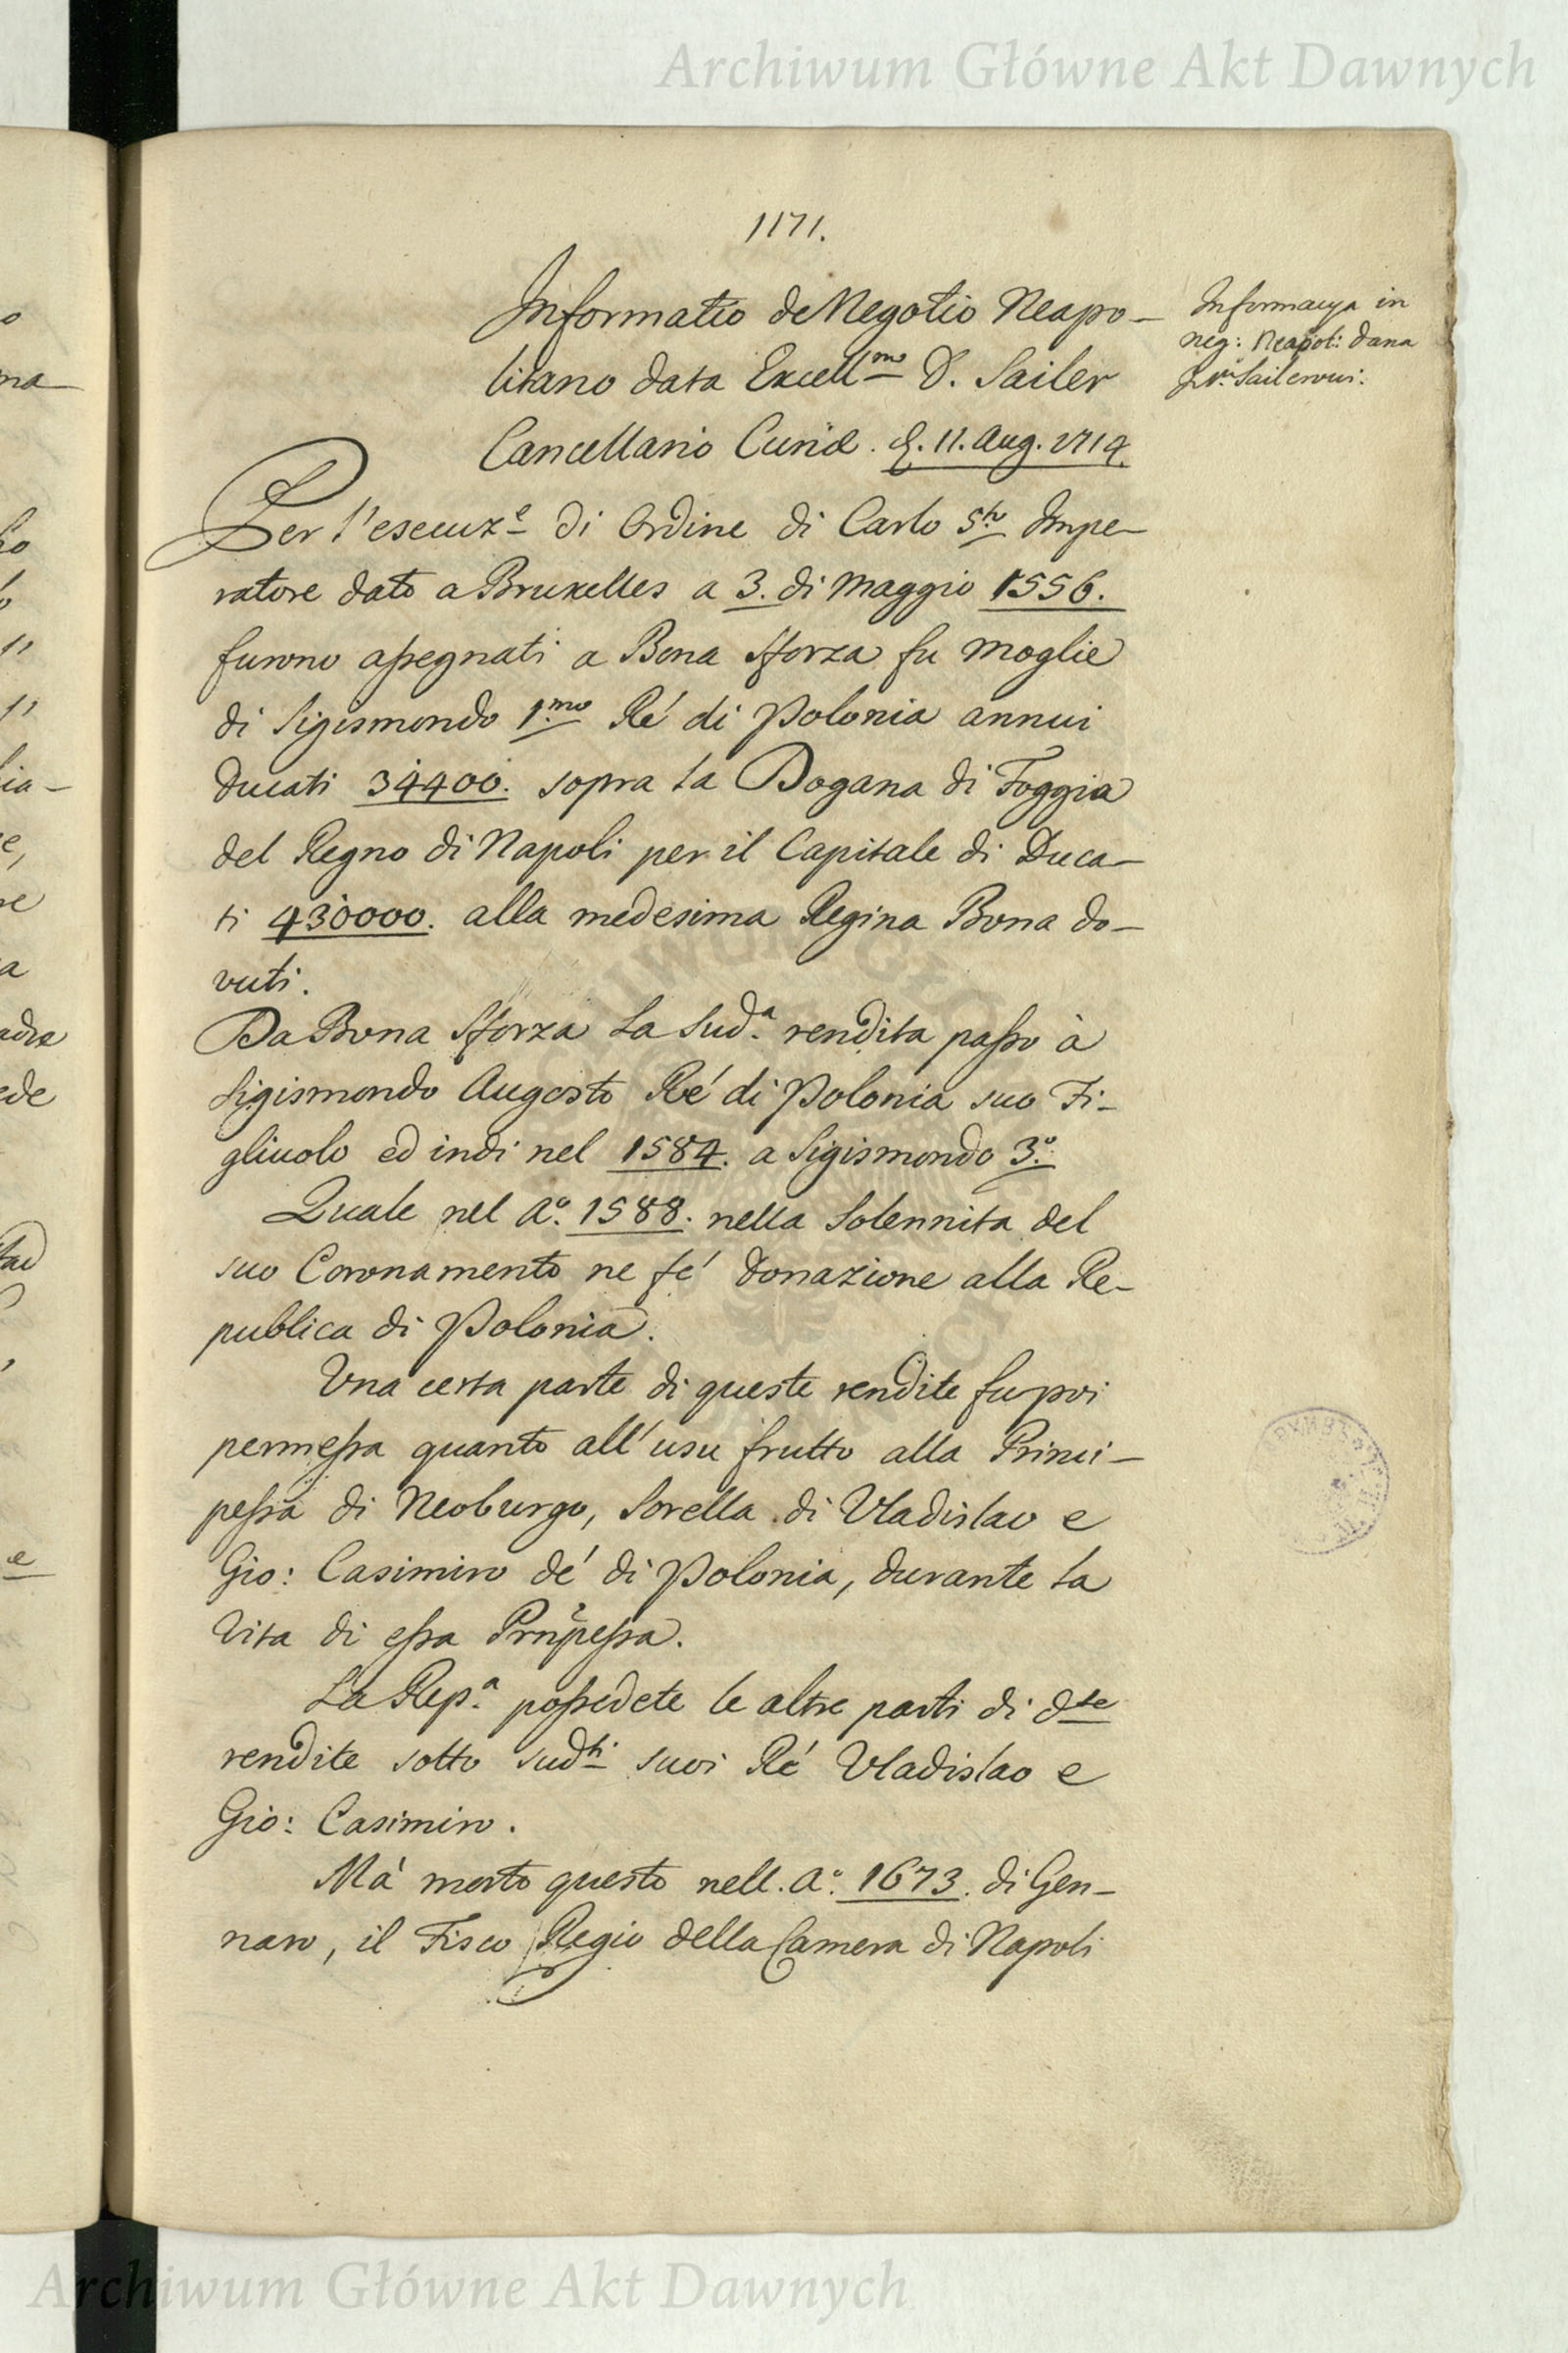 Archiwum Główne Akt Dawnych
1171.
Informatio de Negotio Neapo-
litano data Excell^mo D. Sailer
Cancellario Curiæ. d. 11. Aug. 1714.
Informacya in
neg: Neapol: dana
Sailerowi.
Per l'esecuz^e di Ordine di Carlo 5^to Impe-
ratore dato a Bruxelles a 3. di Maggio 1556.
furono assegnati a Bona Sforza fu Moglie
di Sigismondo 1.^mo Ré di Polonia annui
Ducati 34400. sopra la Dogana di Foggia
del Regno di Napoli per il Capitale di Duca-
ti 430000. alla medesima Regina Bona do-
vuti.
Da Bona Sforza la Sud.^a rendita passo à
Sigismondo Augosto Ré di Polonia suo Fi-
gliuolo ed indi nel 1584. a Sigismondo 3.^o
Quale nel A^o. 1588. nella Solennita del
suo Coronamento ne fé donazione alla Re-
publica di Polonia.
Una certa parte di queste rendite fu poi
permessa quanto all'usu frutto alla Princi-
pessa di Neoburgo, Sorella di Vladislao e
Gio: Casimiro dé di Polonia, durante la
Vita di essa Prñpessa.
La Rep.^a possedete le altre parti di d^te
rendite sotto sud^ti suoi Ré Vladislao e
Gio: Casimiro.
Mà morto questo nell. A^o. 1673. di Gen-
naro, il Fisco Regio della Camera di Napoli
Archiwum Główne Akt Dawnych